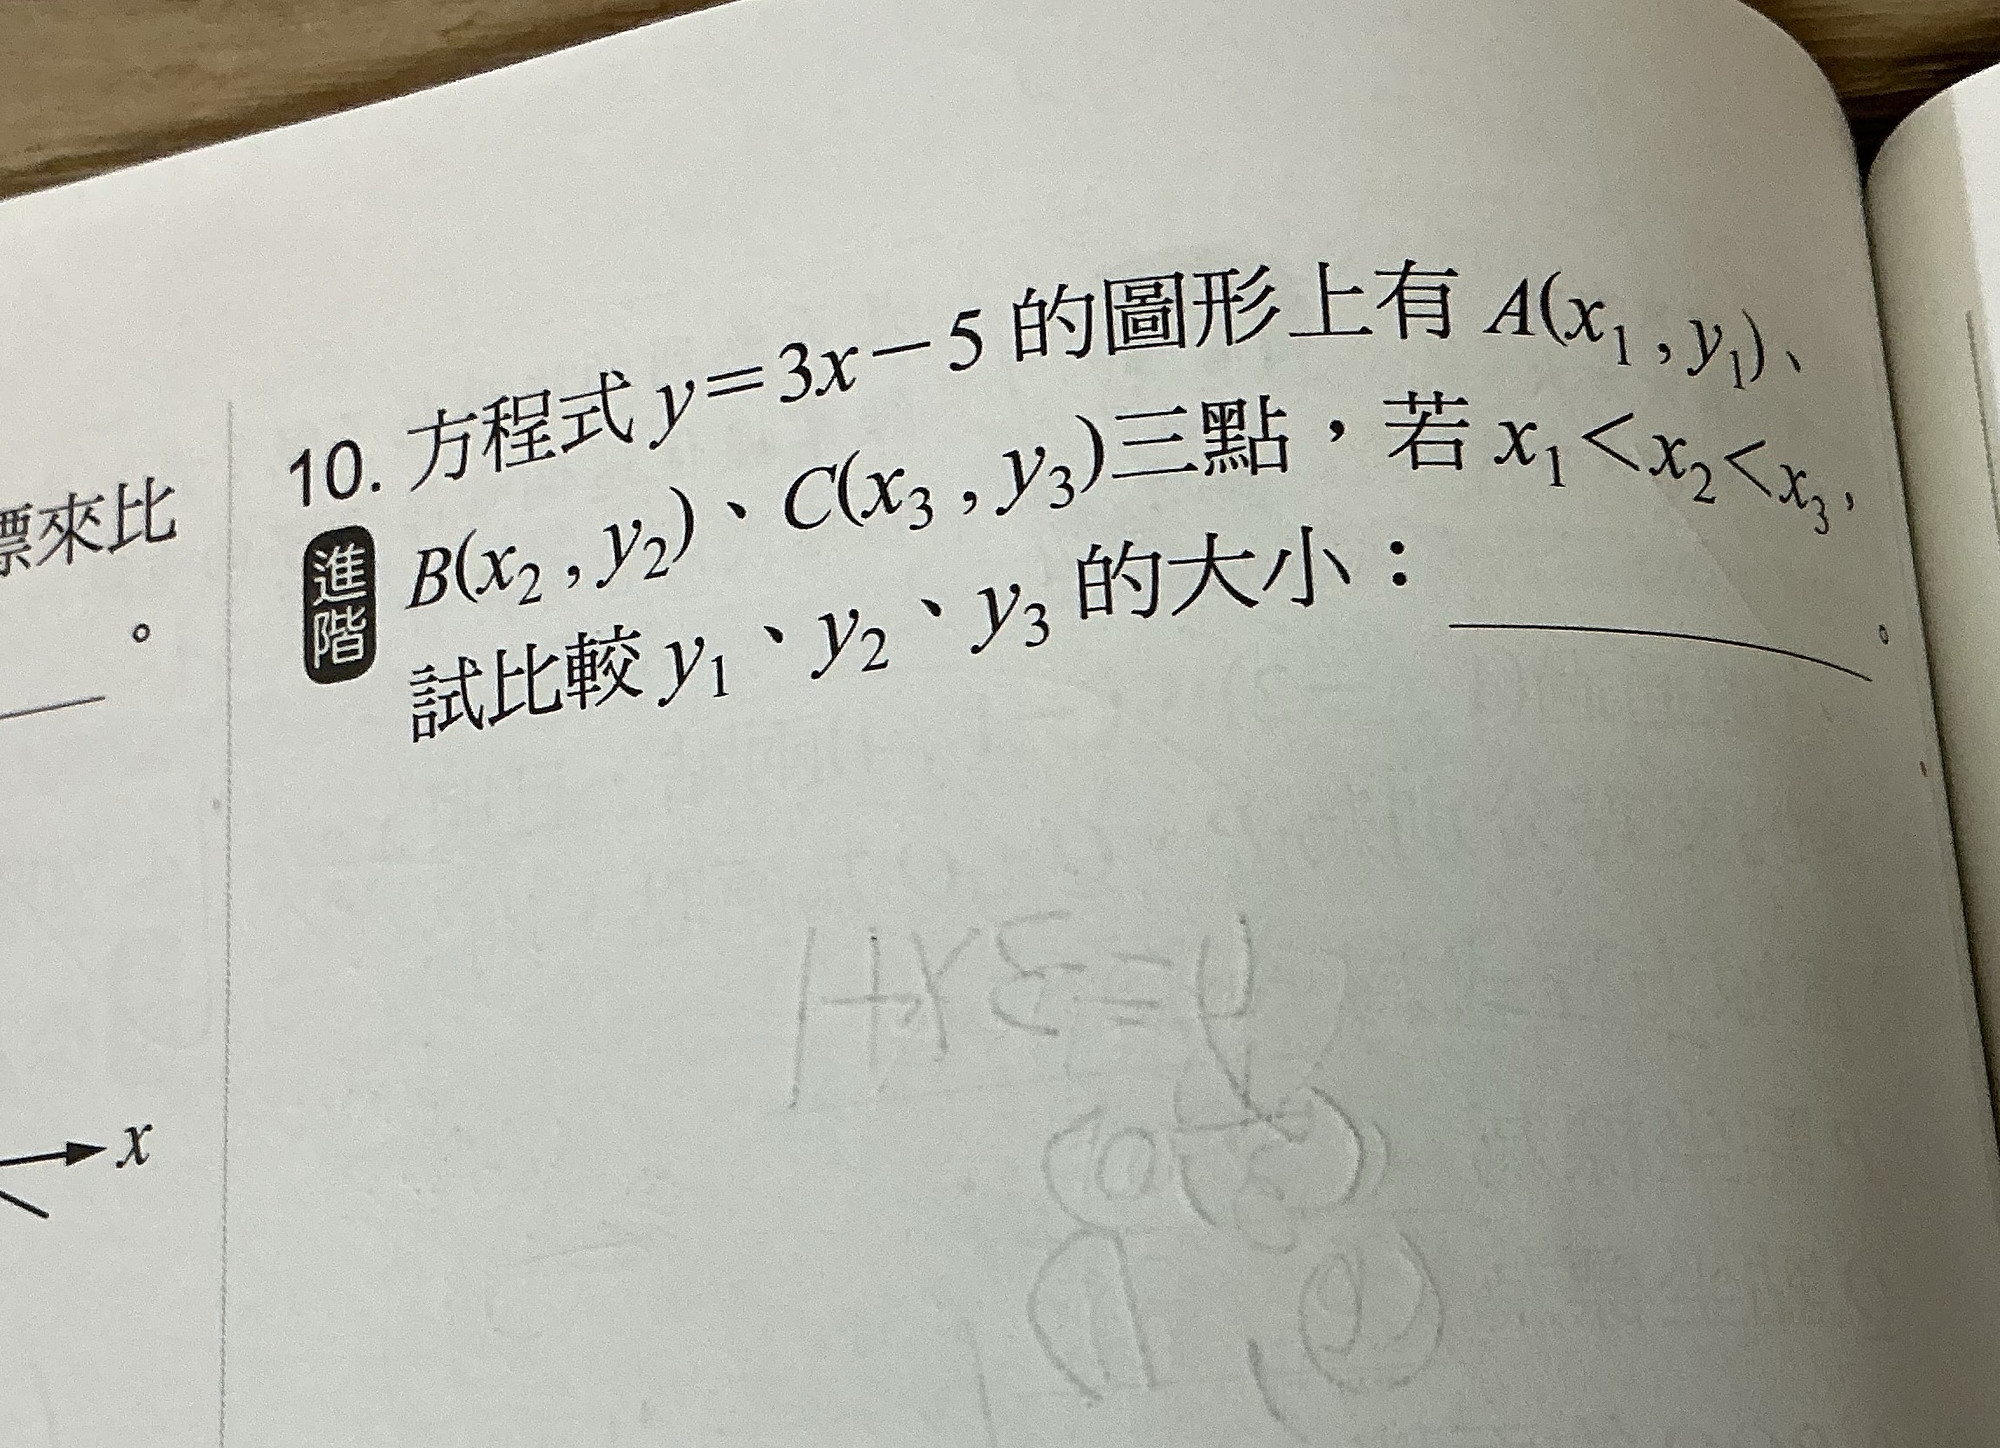 標來比
。
10. 方程式 y=3x-5 的圖形上有 A(x₁, y₁)、
進階
B(x₂, y₂)、C(x₃, y₃)三點，若 x₁<x₂<x₃，
試比較 y₁、y₂、y₃ 的大小：＿＿＿＿。
x